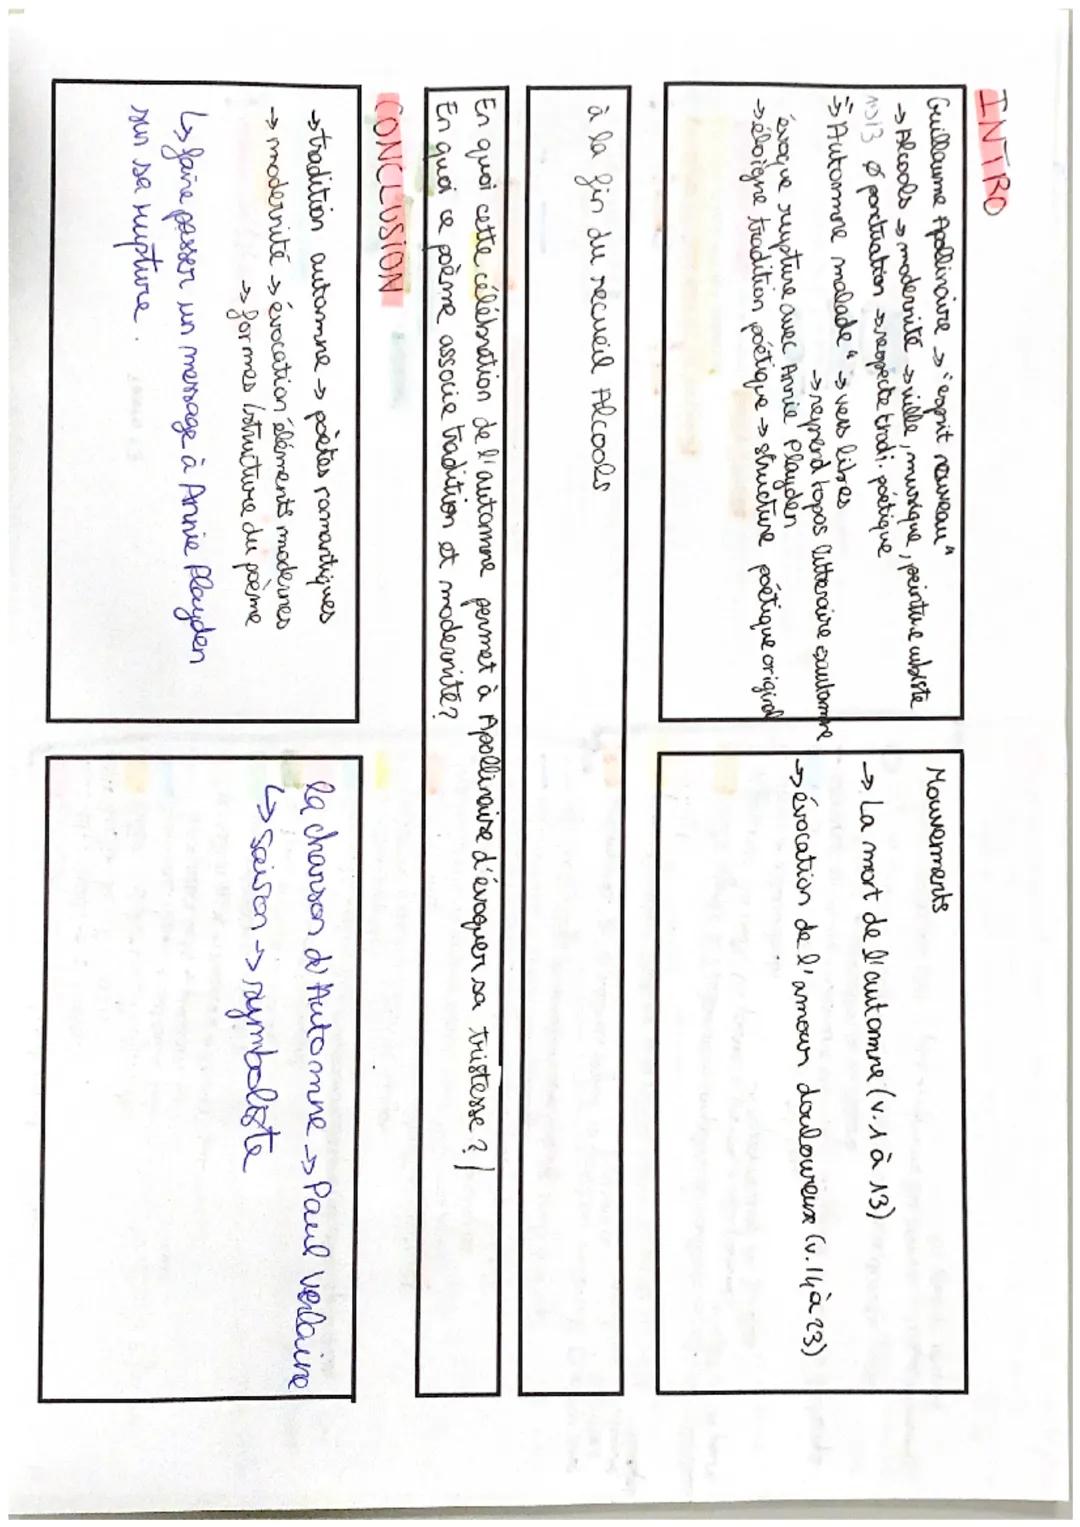 INTRO
Guillaume Apollinaire → "esprit nouveau"
→ Alcools → modernité → ville, musique, peinture cubiste
1913 ø ponctuation → respecte tradi. poétique
⇒ "Automne malade" → vers libres
→ reprend topos litteraire automne
évoque rupture avec Annie Playden
→ éloigne tradition poétique → structure poétique original
Mouvements
→ La mort de l'automne (v.1 à 13)
→ évocation de l'amour douloureux (v.14 à 23)
à la fin du recueil Alcools
En quoi cette célébration de l'automne permet à Apollinaire d'évoquer sa tristesse ? /
En quoi ce poème associe tradition et modernité ?
CONCLUSION
→ tradition automne → poètes romantiques
→ modernité → évocation éléments modernes
→ formes/structure du poème
↳ faire passer un message à Annie Playden
sur sa rupture.
la chanson d'Automne → Paul Verlaine
↳ saison → symboliste